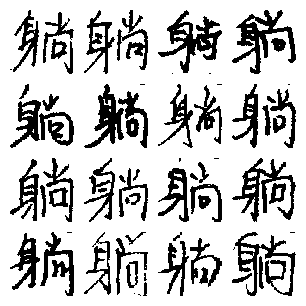 躺躺躺躺
躺躺躺躺
躺躺躺躺
躺躺躺躺